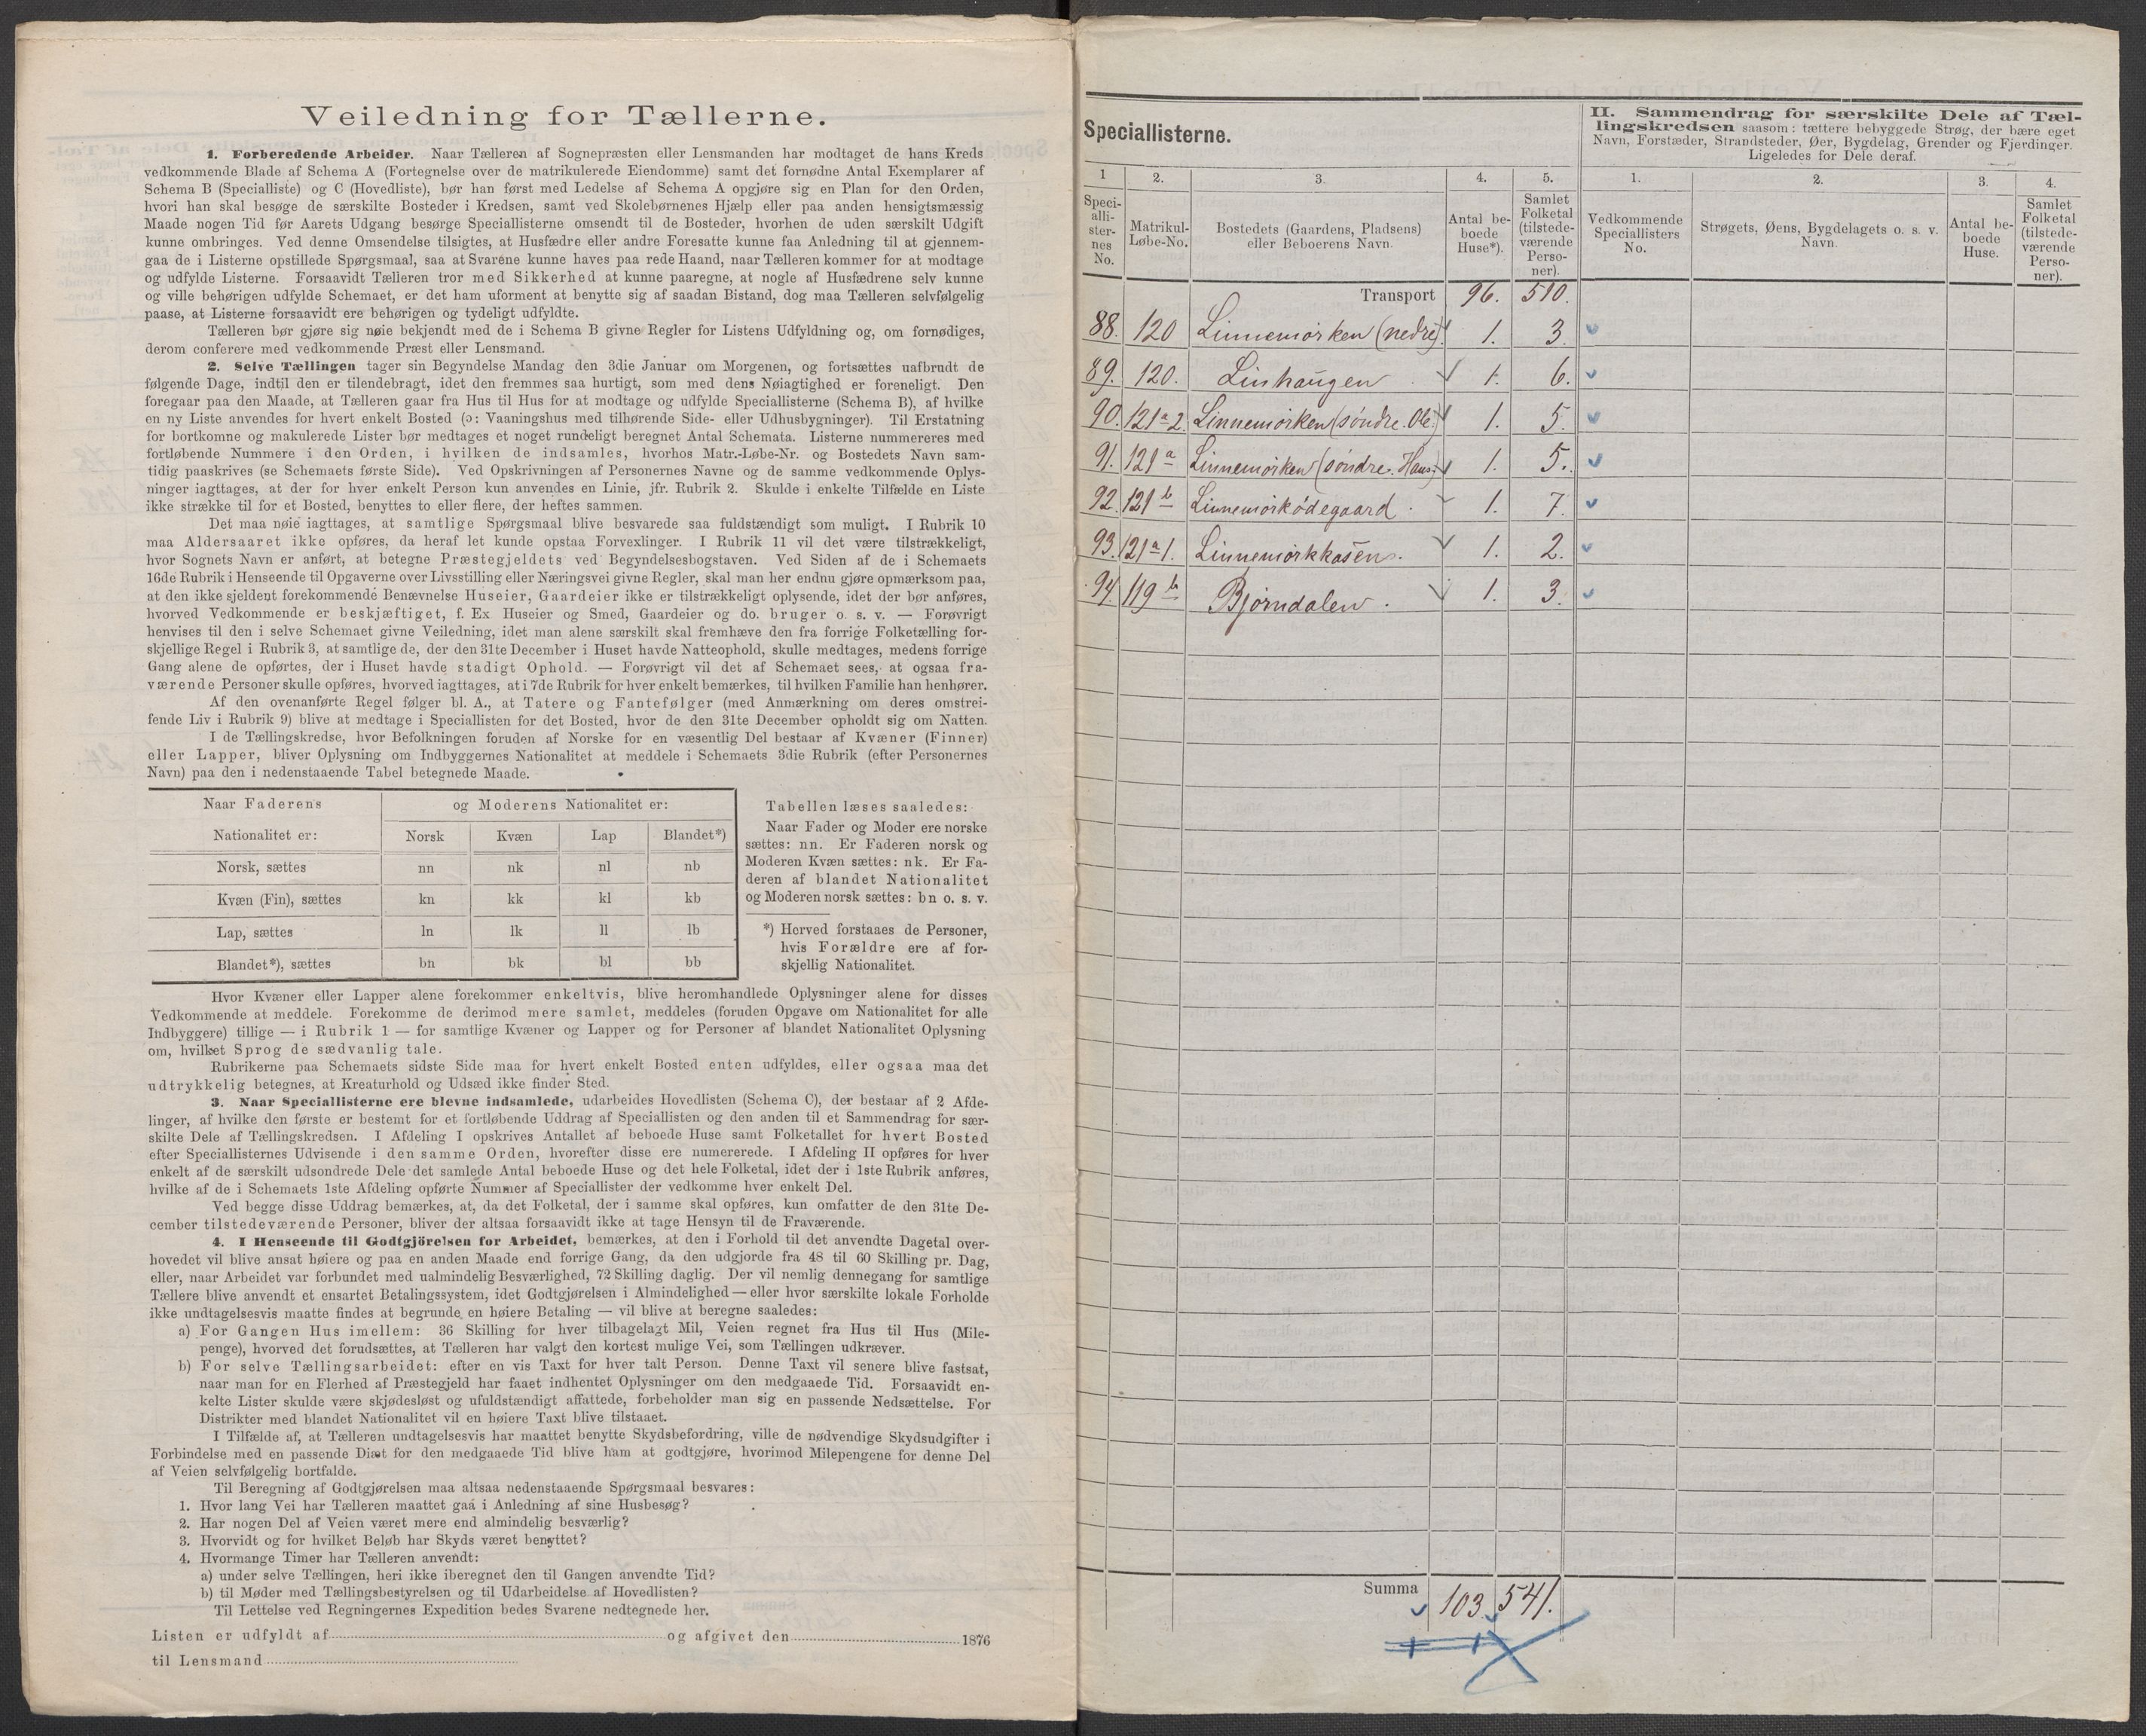 Veiledning for Tællerne.
1. Forberedende Arbeider. Naar Tælleren af Sognepræsten eller Lensmanden har modtaget de hans Kreds
vedkommende Blade af Schema A (Fortegnelse over de matrikulerede Eiendomme) samt det fornødne Antal Exemplarer af
Schema B (Specialliste) og C (Hovedliste), bør han først med Ledelse af Schema A opgjøre sig en Plan for den Orden,
hvori han skal besøge de særskilte Bosteder i Kredsen, samt ved Skolebørnenes Hjælp eller paa anden hensigtsmæssig
Maade nogen Tid før Aarets Udgang besørge Speciallisterne omsendt til de Bosteder, hvorhen de uden særskilt Udgift
kunne ombringes. Ved denne Omsendelse tilsigtes, at Husfædre eller andre Foresatte kunne faa Anledning til at gjennem-
gaa de i Listerne opstillede Spørgsmaal, saa at Svarene kunne haves paa rede Haand, naar Tælleren kommer for at modtage
og udfylde Listerne. Forsaavidt Tælleren tror med Sikkerhed at kunne paaregne, at nogle af Husfædrene selv kunne
og ville behørigen udfylde Schemaet, er det ham uforment at benytte sig af saadan Bistand, dog maa Tælleren selvfølgelig
paase, at Listerne forsaavidt ere behørigen og tydeligt udfyldte.
Tælleren bør gjøre sig nøie bekjendt med de i Schema B givne Regler for Listens Udfyldning og, om fornødiges,
derom conferere med vedkommende Præst eller Lensmand.
2. Selve Tællingen tager sin Begyndelse Mandag den 3die Januar om Morgenen, og fortsættes uafbrudt de
følgende Dage, indtil den er tilendebragt, idet den fremmes saa hurtigt, som med dens Nøiagtighed er foreneligt. Den
foregaar paa den Maade, at Tælleren gaar fra Hus til Hus for at modtage og udfylde Speciallisterne (Schema B), af hvilke
en ny Liste anvendes for hvert enkelt Bosted (ɔ: Vaaningshus med tilhørende Side- eller Udhusbygninger). Til Erstatning
for bortkomne og makulerede Lister bør medtages et noget rundeligt beregnet Antal Schemata. Listerne nummereres med
fortløbende Nummere i den Orden, i hvilken de indsamles, hvorhos Matr.-Løbe-Nr. og Bostedets Navn sam-
tidig paaskrives (se Schemaets første Side). Ved Opskrivningen af Personernes Navne og de samme vedkommende Oplys-
ninger iagttages, at der for hver enkelt Person kun anvendes en Linie, jfr. Rubrik 2. Skulde i enkelte Tilfælde en Liste
ikke strække til for et Bosted, benyttes to eller flere, der heftes sammen.
Det maa nøie iagttages, at samtlige Spørgsmaal blive besvarede saa fuldstændigt som muligt. I Rubrik 10
maa Aldersaaret ikke opføres, da heraf let kunde opstaa Forvexlinger. I Rubrik 11 vil det være tilstrækkeligt,
hvor Sognets Navn er anført, at betegne Præstegjeldets ved Begyndelsesbogstaven. Ved Siden af de i Schemaets
16de Rubrik i Henseende til Opgaverne over Livsstilling eller Næringsvei givne Regler, skal man her endnu gjøre opmærksom paa,
at den ikke sjeldent forekommende Benævnelse Huseier, Gaardeier ikke er tilstrækkeligt oplysende, idet der bør anføres,
hvorved Vedkommende er beskjæftiget, f. Ex Huseier og Smed, Gaardeier og do. bruger o. s. v. — Forøvrigt
henvises til den i selve Schemaet givne Veiledning, idet man alene særskilt skal fremhæve den fra forrige Folketælling for-
skjellige Regel i Rubrik 3, at samtlige de, der den 31te December i Huset havde Natteophold, skulle medtages, medens forrige
Gang alene de opførtes, der i Huset havde stadigt Ophold. — Forøvrigt vil det af Schemaet sees, at ogsaa fra-
værende Personer skulle opføres, hvorved iagttages, at i 7de Rubrik for hver enkelt bemærkes, til hvilken Familie han henhører.
Af den ovenanførte Regel følger bl. A., at Tatere og Fantefølger (med Anmærkning om deres omstrei-
fende Liv i Rubrik 9) blive at medtage i Speciallisten for det Bosted, hvor de den 31te December opholdt sig om Natten.
I de Tællingskredse, hvor Befolkningen foruden af Norske for en væsentlig Del bestaar af Kvæner (Finner)
eller Lapper, bliver Oplysning om Indbyggernes Nationalitet at meddele i Schemaets 3die Rubrik (efter Personernes
Navn) paa den i nedenstaaende Tabel betegnede Maade.
Naar Faderens og Moderens Nationalitet er:
Nationalitet er: Norsk Kvæn Lap Blandet*)
Norsk, sættes nn nk nl nb
Kvæn (Fin), sættes kn kk kl kb
Lap, sættes ln lk ll lb
Blandet*), sættes bn bk bl bb
Tabellen læses saaledes:
Naar Fader og Moder ere norske
sættes: nn. Er Faderen norsk og
Moderen Kvæn sættes: nk. Er Fa-
deren af blandet Nationalitet
og Moderen norsk sættes: bn o. s. v.
*) Herved forstaaes de Personer,
hvis Forældre ere af for-
skjellig Nationalitet.
Hvor Kvæner eller Lapper alene forekommer enkeltvis, blive heromhandlede Oplysninger alene for disses
Vedkommende at meddele. Forekomme de derimod mere samlet, meddeles (foruden Opgave om Nationalitet for alle
Indbyggere) tillige — i Rubrik 1 — for samtlige Kvæner og Lapper og for Personer af blandet Nationalitet Oplysning
om, hvilket Sprog de sædvanlig tale.
Rubrikerne paa Schemaets sidste Side maa for hvert enkelt Bosted enten udfyldes, eller ogsaa maa det
udtrykkelig betegnes, at Kreaturhold og Udsæd ikke finder Sted.
3. Naar Speciallisterne ere blevne indsamlede, udarbeides Hovedlisten (Schema C), der bestaar af 2 Afde-
linger, af hvilke den første er bestemt for et fortløbende Uddrag af Speciallisten og den anden til et Sammendrag for sær-
skilte Dele af Tællingskredsen. I Afdeling I opskrives Antallet af beboede Huse samt Folketallet for hvert Bosted
efter Speciallisternes Udvisende i den samme Orden, hvorefter disse ere numererede. I Afdeling II opføres for hver
enkelt af de særskilt udsondrede Dele det samlede Antal beboede Huse og det hele Folketal, idet der i 1ste Rubrik anføres,
hvilke af de i Schemaets 1ste Afdeling opførte Nummer af Speciallister der vedkomme hver enkelt Del.
Ved begge disse Uddrag bemærkes, at, da det Folketal, der i samme skal opføres, kun omfatter de den 31te De-
cember tilstedeværende Personer, bliver der altsaa forsaavidt ikke at tage Hensyn til de Fraværende.
4. I Henseende til Godtgjörelsen for Arbeidet, bemærkes, at den i Forhold til det anvendte Dagetal over-
hovedet vil blive ansat høiere og paa en anden Maade end forrige Gang, da den udgjorde fra 48 til 60 Skilling pr. Dag,
eller, naar Arbeidet var forbundet med ualmindelig Besværlighed, 72 Skilling daglig. Der vil nemlig dennegang for samtlige
Tællere blive anvendt et ensartet Betalingssystem, idet Godtgjørelsen i Almindelighed — eller hvor særskilte lokale Forholde
ikke undtagelsesvis maatte findes at begrunde en høiere Betaling — vil blive at beregne saaledes:
a) For Gangen Hus imellem: 36 Skilling for hver tilbagelagt Mil, Veien regnet fra Hus til Hus (Mile-
penge), hvorved det forudsættes, at Tælleren har valgt den kortest mulige Vei, som Tællingen udkræver.
b) For selve Tællingsarbeidet: efter en vis Taxt for hver talt Person. Denne Taxt vil senere blive fastsat,
naar man for en Flerhed af Præstegjeld har faaet indhentet Oplysninger om den medgaaede Tid. Forsaavidt en-
kelte Lister skulde være skjødesløst og ufuldstændigt affattede, forbeholder man sig en passende Nedsættelse. For
Distrikter med blandet Nationalitet vil en høiere Taxt blive tilstaaet.
I Tilfælde af, at Tælleren undtagelsesvis har maattet benytte Skydsbefordring, ville de nødvendige Skydsudgifter i
Forbindelse med en passende Diæt for den medgaaede Tid blive ham at godtgjøre, hvorimod Milepengene for denne Del
af Veien selvfølgelig bortfalde.
Til Beregning af Godtgjørelsen maa altsaa nedenstaaende Spørgsmaal besvares:
1. Hvor lang Vei har Tælleren maattet gaa i Anledning af sine Husbesøg?
2. Har nogen Del af Veien været mere end almindelig besværlig?
3. Hvorvidt og for hvilket Beløb har Skyds været benyttet?
4. Hvormange Timer har Tælleren anvendt:
a) under selve Tællingen, heri ikke iberegnet den til Gangen anvendte Tid?
b) til Møder med Tællingsbestyrelsen og til Udarbeidelse af Hovedlisten?
Til Lettelse ved Regningernes Expedition bedes Svarene nedtegnede her.
Listen er udfyldt af og afgivet den 1876
til Lensmand
Speciallisterne.
1 2. 3. 4. 5.
Speci-alli-ster-nes No. Matrikul-Løbe-No. Bostedets (Gaardens, Pladsens) eller Beboerens Navn. Antal be-boede Huse*). Samlet Folketal (tilstede-værende Perso-ner).
Transport 96. 510.
88. 120 Linnemörken (nedre). 1. 3.
89. 120. Linhaugen 1. 6.
90. 121 a 2. Linnemörken (söndre. Ole.) 1. 5.
91. 121 a Linnemörken (söndre. Hans.) 1. 5.
92. 121 b Linnemörködegaard. 1. 7.
93. 121 a 1. Linnemörkkasen. 1. 2.
94. 119 b Björndalen. 1. 3.
Summa 103. 541.
II. Sammendrag for særskilte Dele af Tæl-
lingskredsen saasom: tættere bebyggede Strøg, der bære eget
Navn, Forstæder, Strandsteder, Øer, Bygdelag, Grender og Fjerdinger.
Ligeledes for Dele deraf.
1. 2. 3. 4.
Vedkommende Speciallisters No. Strøgets, Øens, Bygdelagets o. s. v. Navn. Antal be-boede Huse. Samlet Folketal (tilstede-værende Perso-ner).